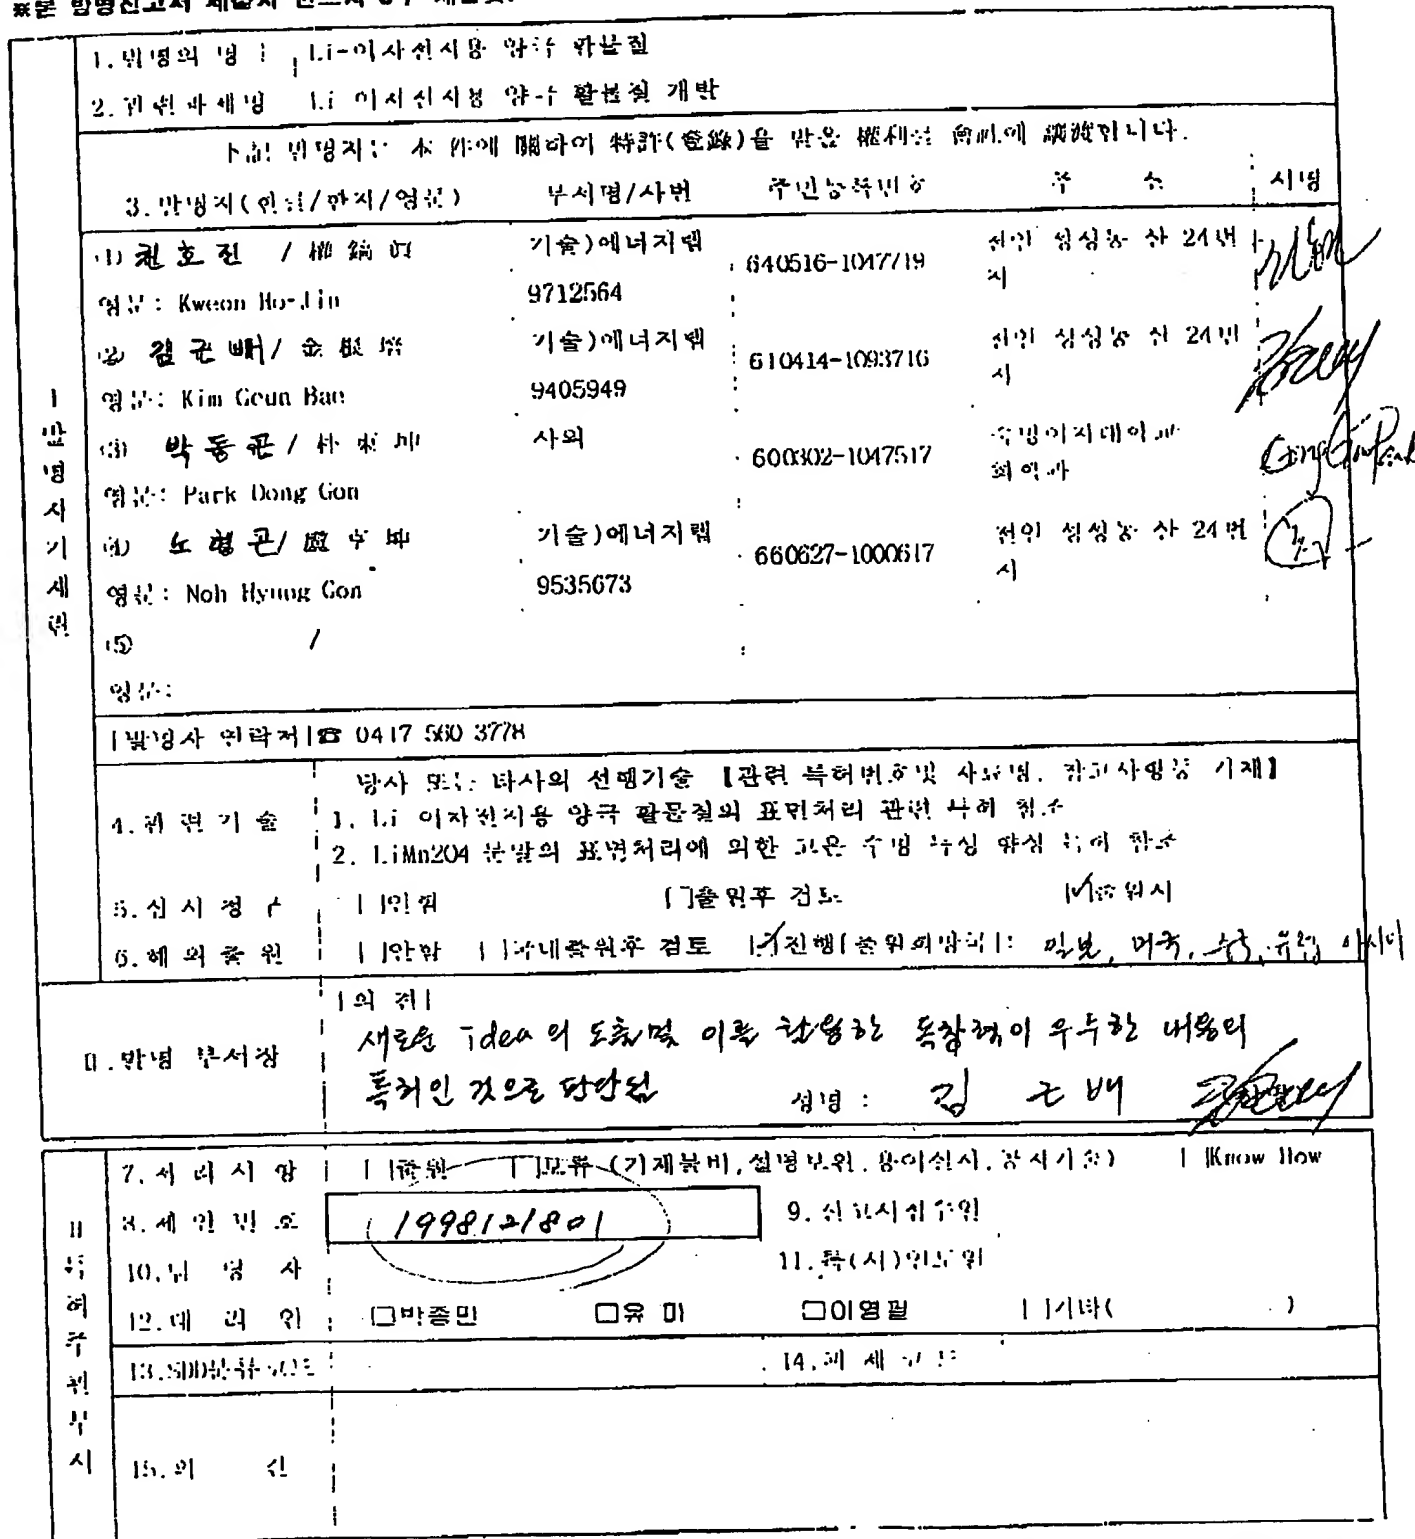 1.발명의 명 : Li-이차전지용 양극 활물질
2.관련과제명 Li 이차전지용 양극 활물질 개발
下記 발명자는 本 件에 關하여 特許(登錄)을 받을 權利를 會社에 讓渡합니다.
3.발명자(한글/한자/영문) 부서명/사번 주민등록번호 주 소 서명
(1) 권호진 / 權鎬
기술)에너지랩 640516-1047719 천안시 성성동 산 24번
영문: Kweon Ho-Jin 9712564
(2) 김근배/ 金根培 기술)에너지랩 610414-1093716 천안시 성성동 산 24번
영문: Kim Geun Bae 9405949
(3) 박동곤/ 朴東坤 사외 600302-1047517 숙명여자대학교 화학과
영문: Park Dong Gon
(4) 노형곤/ 盧亨坤 기술)에너지랩 660627-1000617 천안시 성성동 산 24번
영문: Noh Hyung Gon 9535673
(5) /
영문:
[발명자 연락처]☎ 0417 560 3778
당사 또는 타사의 선행기술 【관련 특허번호및 사유명, 참고사항등 기재】
4.관련기술
1. Li 이차전지용 양극 활물질의 표면처리 관련 특허 참조
2. LiMn2O4 분말의 표면처리에 의한 고온 수명 특성 향상 특허 참조
5.심사청구 [ ]안함 [ ]출원후 검토 [✓]출원시
6.해외출원 [ ]안함 [ ]국내출원후 검토 [✓]진행[출원희망국]: 일본, 미국, 중국, 유럽
I 발명자기재란
[의 견]
II.발명 부서장
새로운 idea의 도출및 이를 활용한 독창력이 우수한 내용의
특허인 것으로 판단됨
성명 : 김 근 배
7.처리사항 [ ]출원 [ ]보류 (기재불비,설명보완,용이실시,공지기술) [ ]Know How
8.제안번호 1998121801 9.신고서접수인
10.담 당 자
12.대 리 인 □박종민 □유 미 □이영필 [ ]기타( )
13.SDD분류코드 14.과제코드
15.의 견